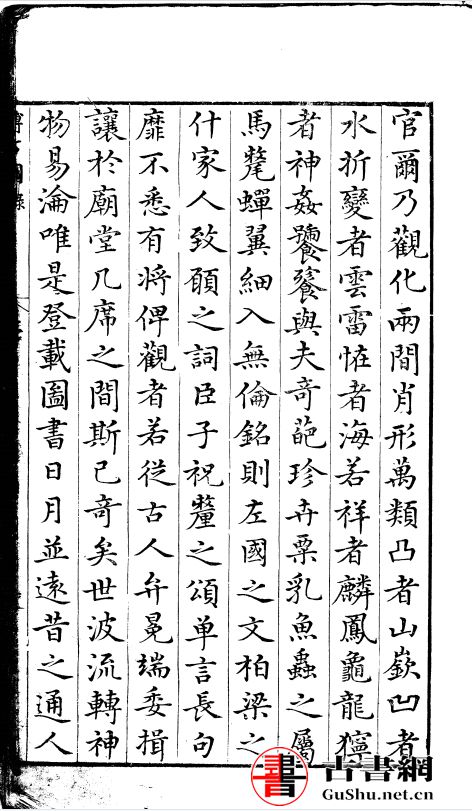 官爾乃觀化兩間肖形萬類凸者山嶽凹者
水折變者雲雷恠者海若祥者麟鳳龜龍獰
者神姦饕餮與夫奇葩珍卉粟乳魚蟲之屬
馬氂蟬翼細入無倫銘則左國之文柏梁之
什家人致願之詞臣子祝釐之頌单言長句
靡不悉有將俾觀者若從古人弁冕端委揖
讓於廟堂几席之間斯已竒矣世波流轉神
物易淪唯是登載圖書日月並遠昔之通人
書 古書網
GuShu.net.cn